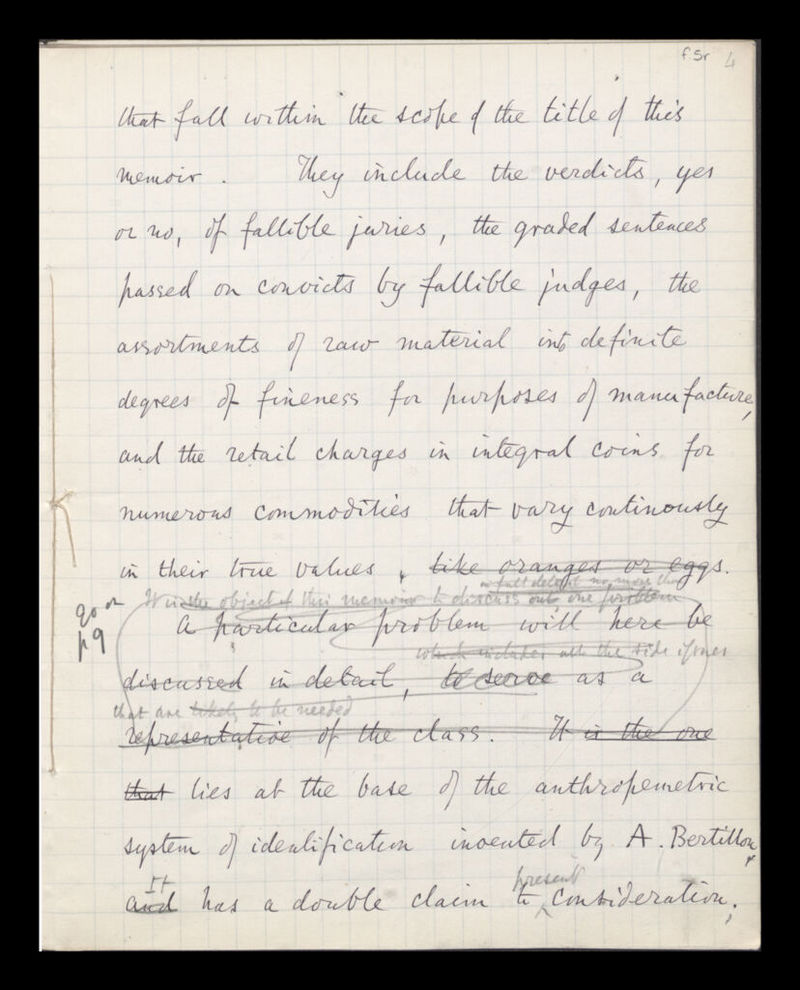 f5r 4
that fall within the scope of the title of this
memoir. They include the verdicts, yes
or no, of fallible juries, the graded sentences
passed on convicts by fallible judges, the
assortments of raw material into definite
degrees of fineness for purposes of manufacture,
and the retail charges in integral coins for
numerous commodities that vary continously
in their true values, like oranges or eggs.
in full detail no more than
It is the object of this memoir to discuss one problem
go on
p9
A particular problem will here be
which includes all the side issues
discussed in detail, to serve as a
that are likely to be needed
representative of the class. It is the one
that lies at the base of the anthropemetric
system of identification invented by A. Bertillon,
It present
and has a double claim to consideration;